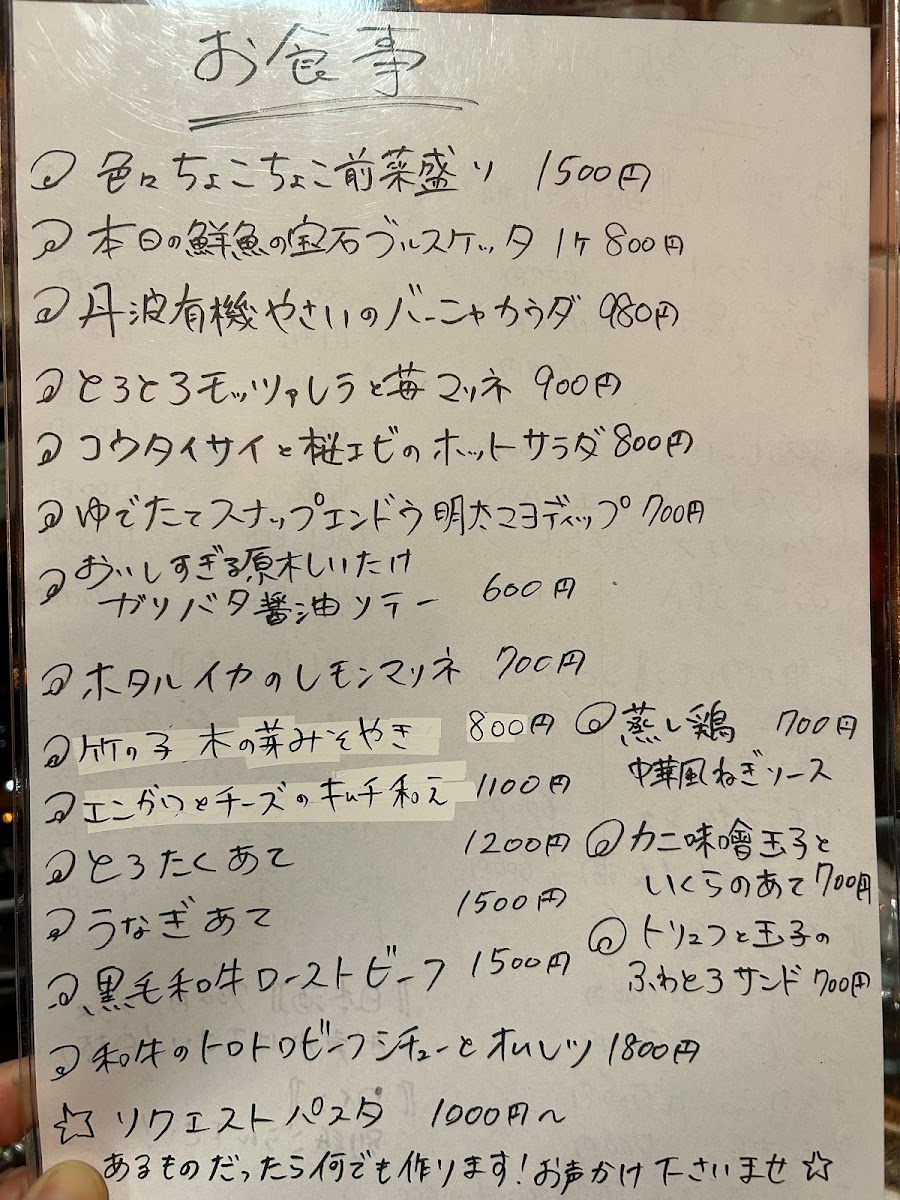 お食事
色々ちょこちょこ前菜盛り 1500円
本日の鮮魚の宝石ブルスケッタ 1ヶ 800円
丹波有機やさいのバーニャカウダ 980円
とろとろモッツァレラと苺マリネ 900円
コウタイサイと桜エビのホットサラダ 800円
ゆでたてスナップエンドウ 明太マヨディップ 700円
おいしすぎる原木しいたけ
ガリバタ醤油ソテー 600円
ホタルイカのレモンマリネ 700円
竹の子 木の芽みそやき 800円
エンガワとチーズのキムチ和え 1100円
とろたくあて 1200円
うなぎあて 1500円
黒毛和牛ローストビーフ 1500円
蒸し鶏 700円
中華風ねぎソース
カニ味噌玉子と
いくらのあて 700円
トリュフと玉子の
ふわとろサンド 700円
和牛のトロトロビーフシチューとオムレツ 1800円
☆ リクエストパスタ 1000円〜
あるものだったら何でも作ります!お声かけ下さいませ☆